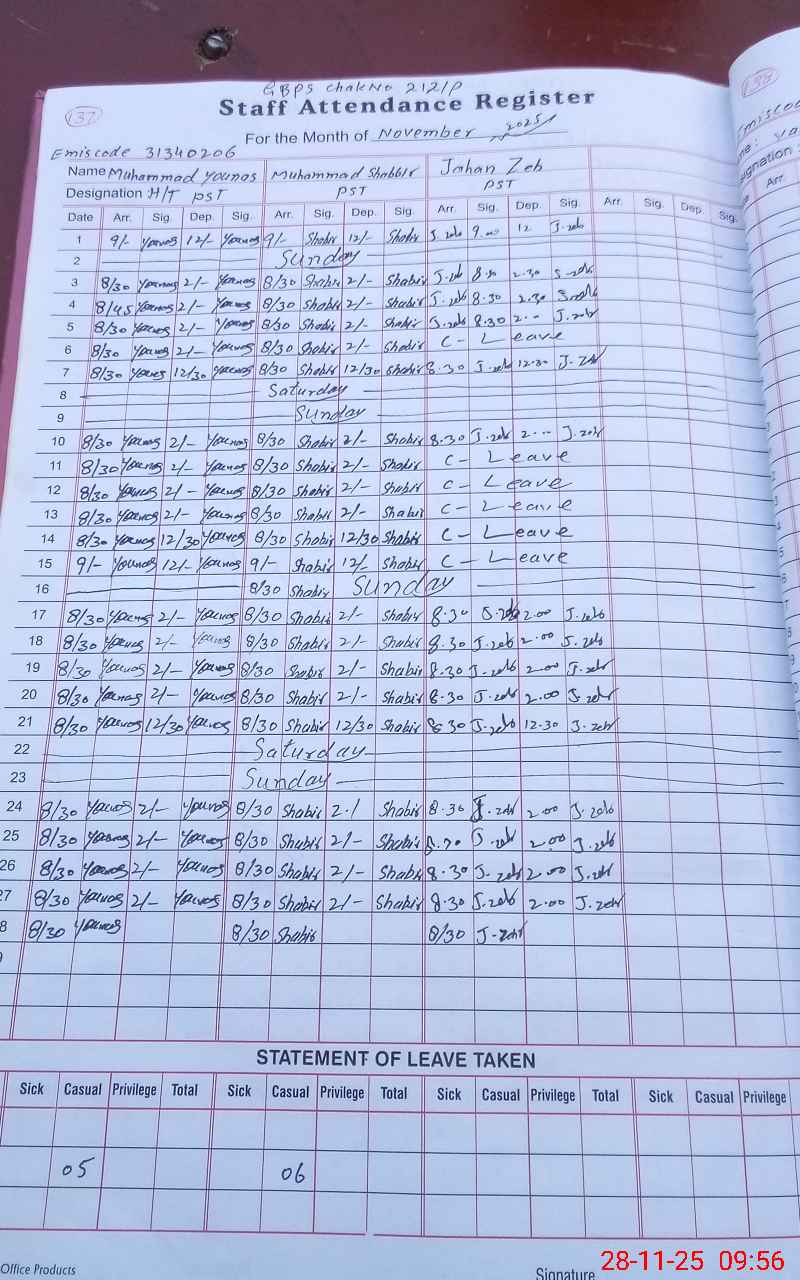 GBPS Chak No 212/P
137
Staff Attendance Register
137
For the Month of November 2025
Emiscode 31340206
Emiscode
Name Muhammad Younas Muhammad Shabbir Jahan Zeb
Designation H/T PST PST PST
Date Arr. Sig. Dep. Sig. Arr. Sig. Dep. Sig. Arr. Sig. Dep. Sig. Arr. Sig. Dep. Sig. Arr.
1 9/- Younas 12/- Younas 9/- Shabir 12/- Shabir J.zeb 9.00 12 J.zeb
2 Sunday
3 8/30 Younas 2/- Younas 8/30 Shabir 2/- Shabir J.zeb 8.30 2.30 J.zeb
4 8/45 Younas 2/- Younas 8/30 Shabir 2/- Shabir J.zeb 8.30 2.30 J.zeb
5 8/30 Younas 2/- Younas 8/30 Shabir 2/- Shabir J.zeb 8.30 2.- J.zeb
6 8/30 Younas 2/- Younas 8/30 Shabir 2/- Shabir C-Leave
7 8/30 Younas 12/30 Younas 8/30 Shabir 12/30 Shabir 8.30 J.zeb 12.30 J.zeb
8 Saturday
9 Sunday
10 8/30 Younas 2/- Younas 8/30 Shabir 2/- Shabir 8.30 J.zeb 2.-- J.zeb
11 8/30 Younas 2/- Younas 8/30 Shabir 2/- Shabir C-Leave
12 8/30 Younas 2/- Younas 8/30 Shabir 2/- Shabir C-Leave
13 8/30 Younas 2/- Younas 8/30 Shabir 2/- Shabir C-Leave
14 8/30 Younas 12/30 Younas 8/30 Shabir 12/30 Shabir C-Leave
15 9/- Younas 12/- Younas 9/- Shabir 12/- Shabir C-Leave
16 8/30 Shabir Sunday
17 8/30 Younas 2/- Younas 8/30 Shabir 2/- Shabir 8.30 J.zeb 2.00 J.zeb
18 8/30 Younas 2/- Younas 8/30 Shabir 2/- Shabir 8.30 J.zeb 2.00 J.zeb
19 8/30 Younas 2/- Younas 8/30 Shabir 2/- Shabir 8.30 J.zeb 2.00 J.zeb
20 8/30 Younas 2/- Younas 8/30 Shabir 2/- Shabir 8.30 J.zeb 2.00 J.zeb
21 8/30 Younas 12/30 Younas 8/30 Shabir 12/30 Shabir 8.30 J.zeb 12.30 J.zeb
22 Saturday
23 Sunday
24 8/30 Younas 2/- Younas 8/30 Shabir 2./ Shabir 8.30 J.zeb 2.00 J.zeb
25 8/30 Younas 2/- Younas 8/30 Shabir 2/- Shabir 8.30 J.zeb 2.00 J.zeb
26 8/30 Younas 2/- Younas 8/30 Shabir 2/- Shabir 8.30 J.zeb 2.00 J.zeb
27 8/30 Younas 2/- Younas 8/30 Shabir 2/- Shabir 8.30 J.zeb 2.00 J.zeb
8 8/30 Younas 8/30 Shabir 8/30 J.zeb
STATEMENT OF LEAVE TAKEN
Sick Casual Privilege Total Sick Casual Privilege Total Sick Casual Privilege Total Sick Casual Privilege
05 06
Office Products
Signature
28-11-25 09:56